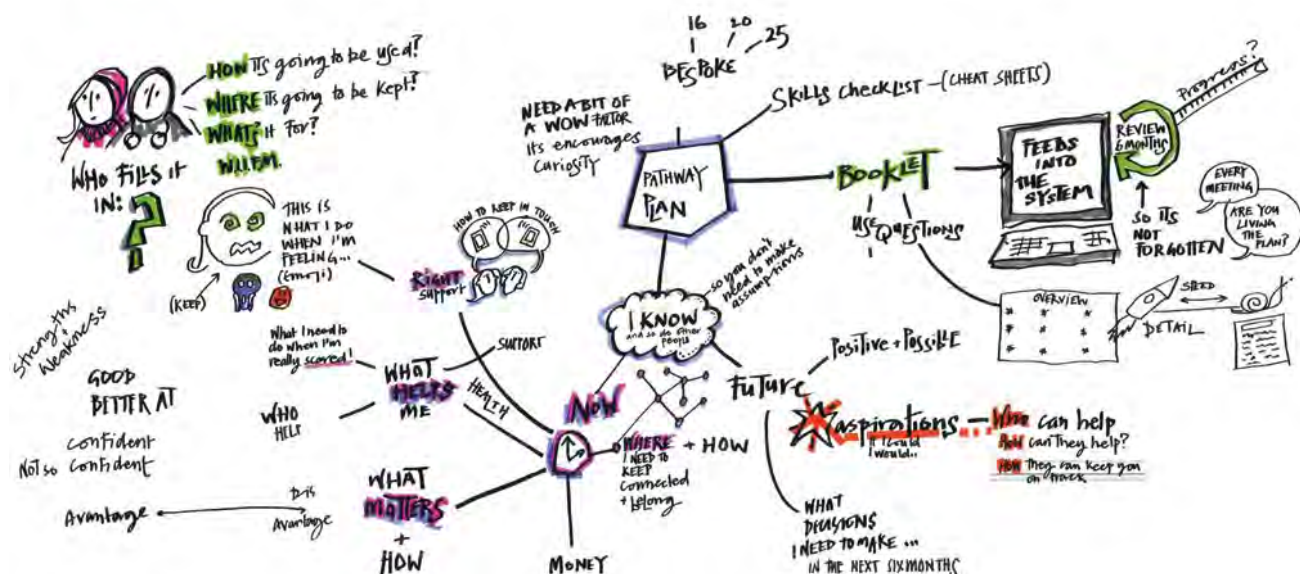 HOW ITS going to be used?
WHERE ITS going to be kept?
WHAT'S it For?
WILLEM.
WHO FILLS it
IN:
?
THIS IS
WHAT I DO
WHEN I'M
FEELING...
(Emoji)
(KEEP)
Strengths
+
Weakness
GOOD
BETTER AT
confident
Not so confident
Avantage
Dis
Avantage
HOW TO KEEP IN TOUCH
RIGHT
support
What I need to
do when I'm
really scared!
WHAT
HELPS
ME
SUPPORT
HEALTH
WHO
HELP
WHAT
MATTERS
+
HOW
MONEY
NOW
WHERE + HOW
I NEED TO
KEEP
connected
+ belong
I KNOW
and so do other
people
so you don't
need to make
assumptions
16 20
25
BESPOKE
NEED A BIT OF
A WOW FACTOR
Its encourages
curiosity
SKILLS CHECKLIST — (CHEAT SHEETS)
PATHWAY
PLAN
BOOKLET
USE QUESTIONS
FEEDS
INTO
THE
SYSTEM
REVIEW
6 MONTHS
Progress?
SO ITS
NOT
FORGOTTEN
EVERY
MEETING
ARE YOU
LIVING
THE
PLAN?
OVERVIEW
SPEED
DETAIL
FUTURE
POSITIVE + POSSILLE
aspirations
If I could
I would..
Who can help
How can they help?
HOW they can keep you
on track
WHAT
DECISIONS
I NEED TO MAKE ...
IN THE NEXT SIX MONTHS